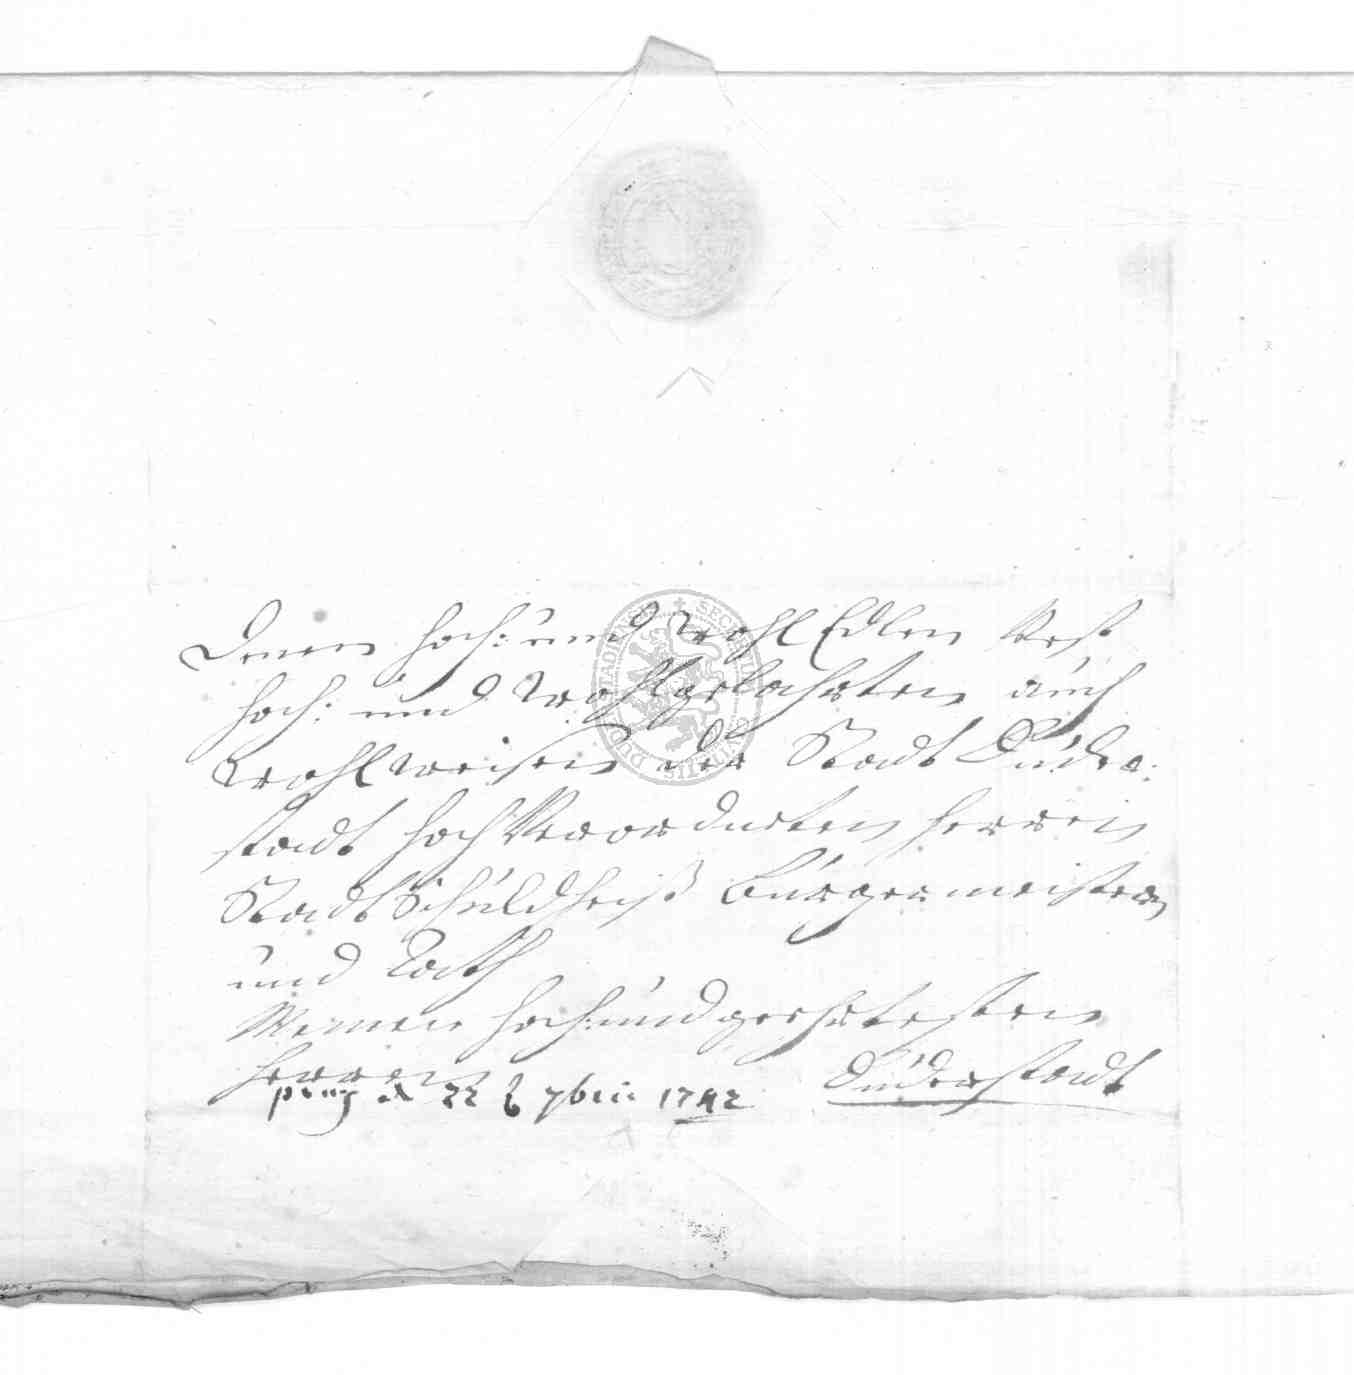 Denen Hoch: und WohlEdlen Vest
Hoch: und Wohlgelahrten auch
Wohlweisen der Stadt Duder:
stadt HochVerordneten Herren
StadtSchuldheiß Burgermeistern
und Rath
Meinen Hoch: und geehrtesten
Herren
Duderstadt
22 7bris 1742
SECRETUM CIVITATIS DUDERSTADIENSIS